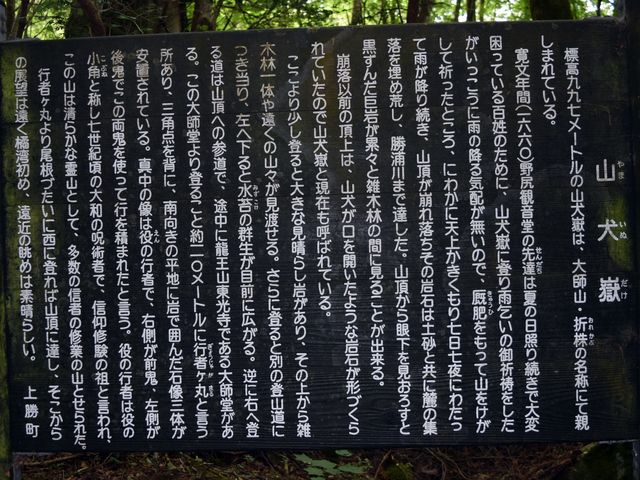 山犬嶽
やまいぬだけ
標高九九七メートルの山犬嶽は、大師山・折株の名称にて親
おれかぶ
しまれている。
寛文年間(一六六〇)野尻観音堂の先達は夏の日照り続きで大変
せんだち
困っている百姓のために、山犬嶽に登り雨乞いの御祈祷をした
がいっこうに雨の降る気配が無いので、厩肥をもって山をけが
きゅうひ
して祈ったところ、にわかに天上かきくもり七日七夜にわたっ
て雨が降り続き、山頂が崩れ落ちその岩石は土砂と共に麓の集
落を埋め荒し、勝浦川まで達した。山頂から眼下を見おろすと
黒ずんだ巨岩が累々と雑木林の間に見ることが出来る。
崩落以前の頂上は、山犬が口を開いたような岩石が形づくら
れていたので山犬嶽と現在も呼ばれている。
ここより少し登ると大きな見晴らし岩があり、その上から雑
木林一体や遠くの山々が見渡せる。さらに登ると別の登山道に
つき当り、左へ下ると水苔の群生が目前に広がる。逆に右へ登
みずごけ
る道は山頂への参道で、途中に龍王山東光寺である大師堂があ
る。この大師堂より登ること約二〇メートルに行者ヶ丸と言う
ぎょうじゃがまる
所あり、三角点を背に、南向きの平地に岩で囲んだ石像三体が
安置されている。真中の像は役の行者で、右側が前鬼、左側が
えん
後鬼でこの両鬼を使って行を積まれたと言う。役の行者は役の
小角と称し七世紀頃の大和の呪術者で、信仰修験の祖と言われ、
こずぬ
この山は清らかな霊山として、多数の信者の修業の山と仕られた。
行者ヶ丸より尾根づたいに西に登れば山頂に達し、そこから
の展望は遠く橘湾初め、遠近の眺めは素晴らしい。
上勝町